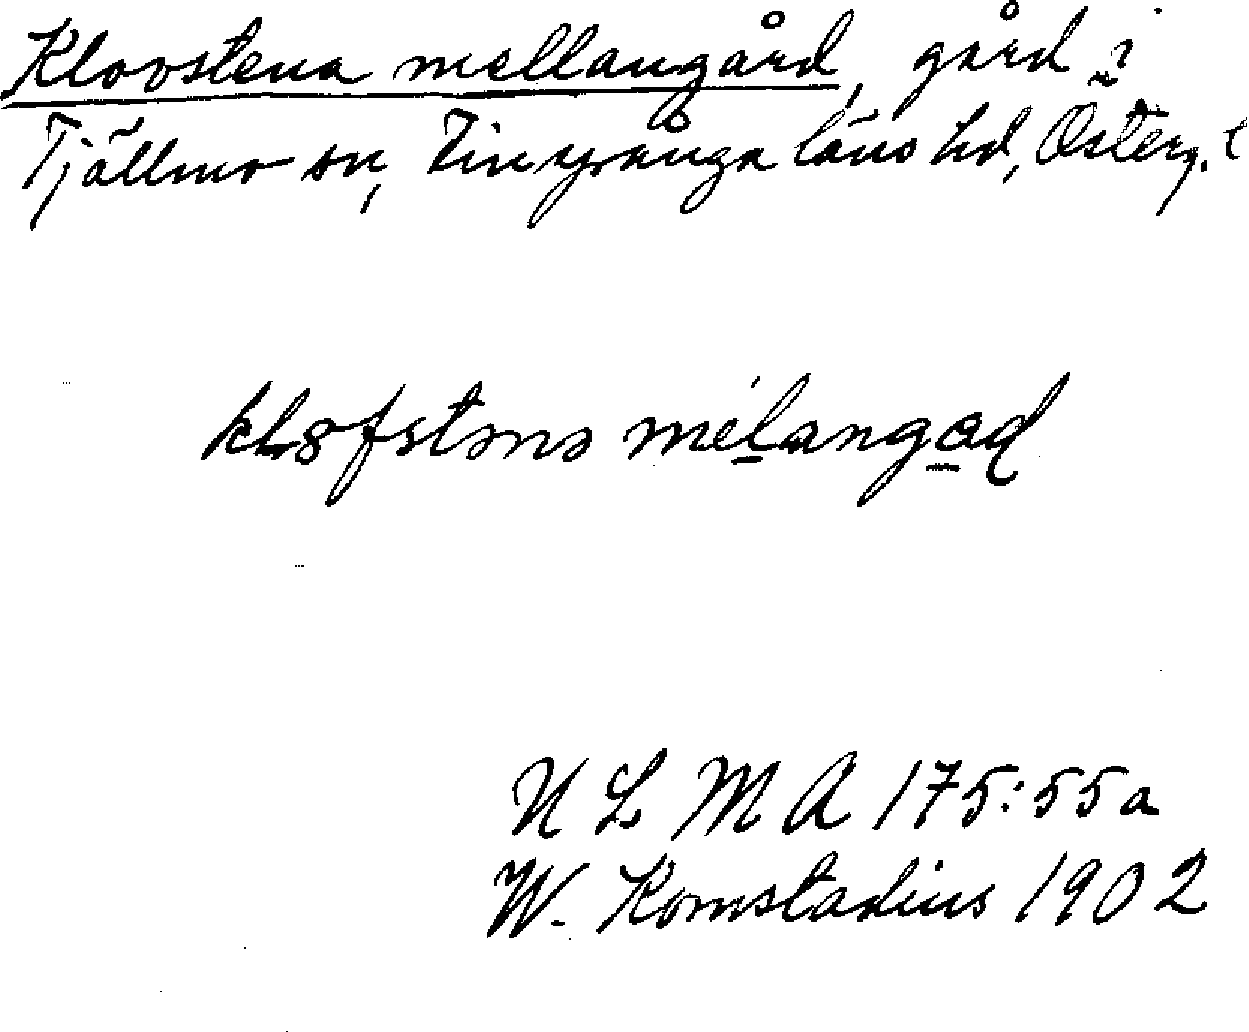 Klovstena mellangård, gård i
Tjällmo sn, Finspånga läns hd, Österg. l
kLøfstənə mélangad
ULMA 175:55a
W. Komstadius 1902